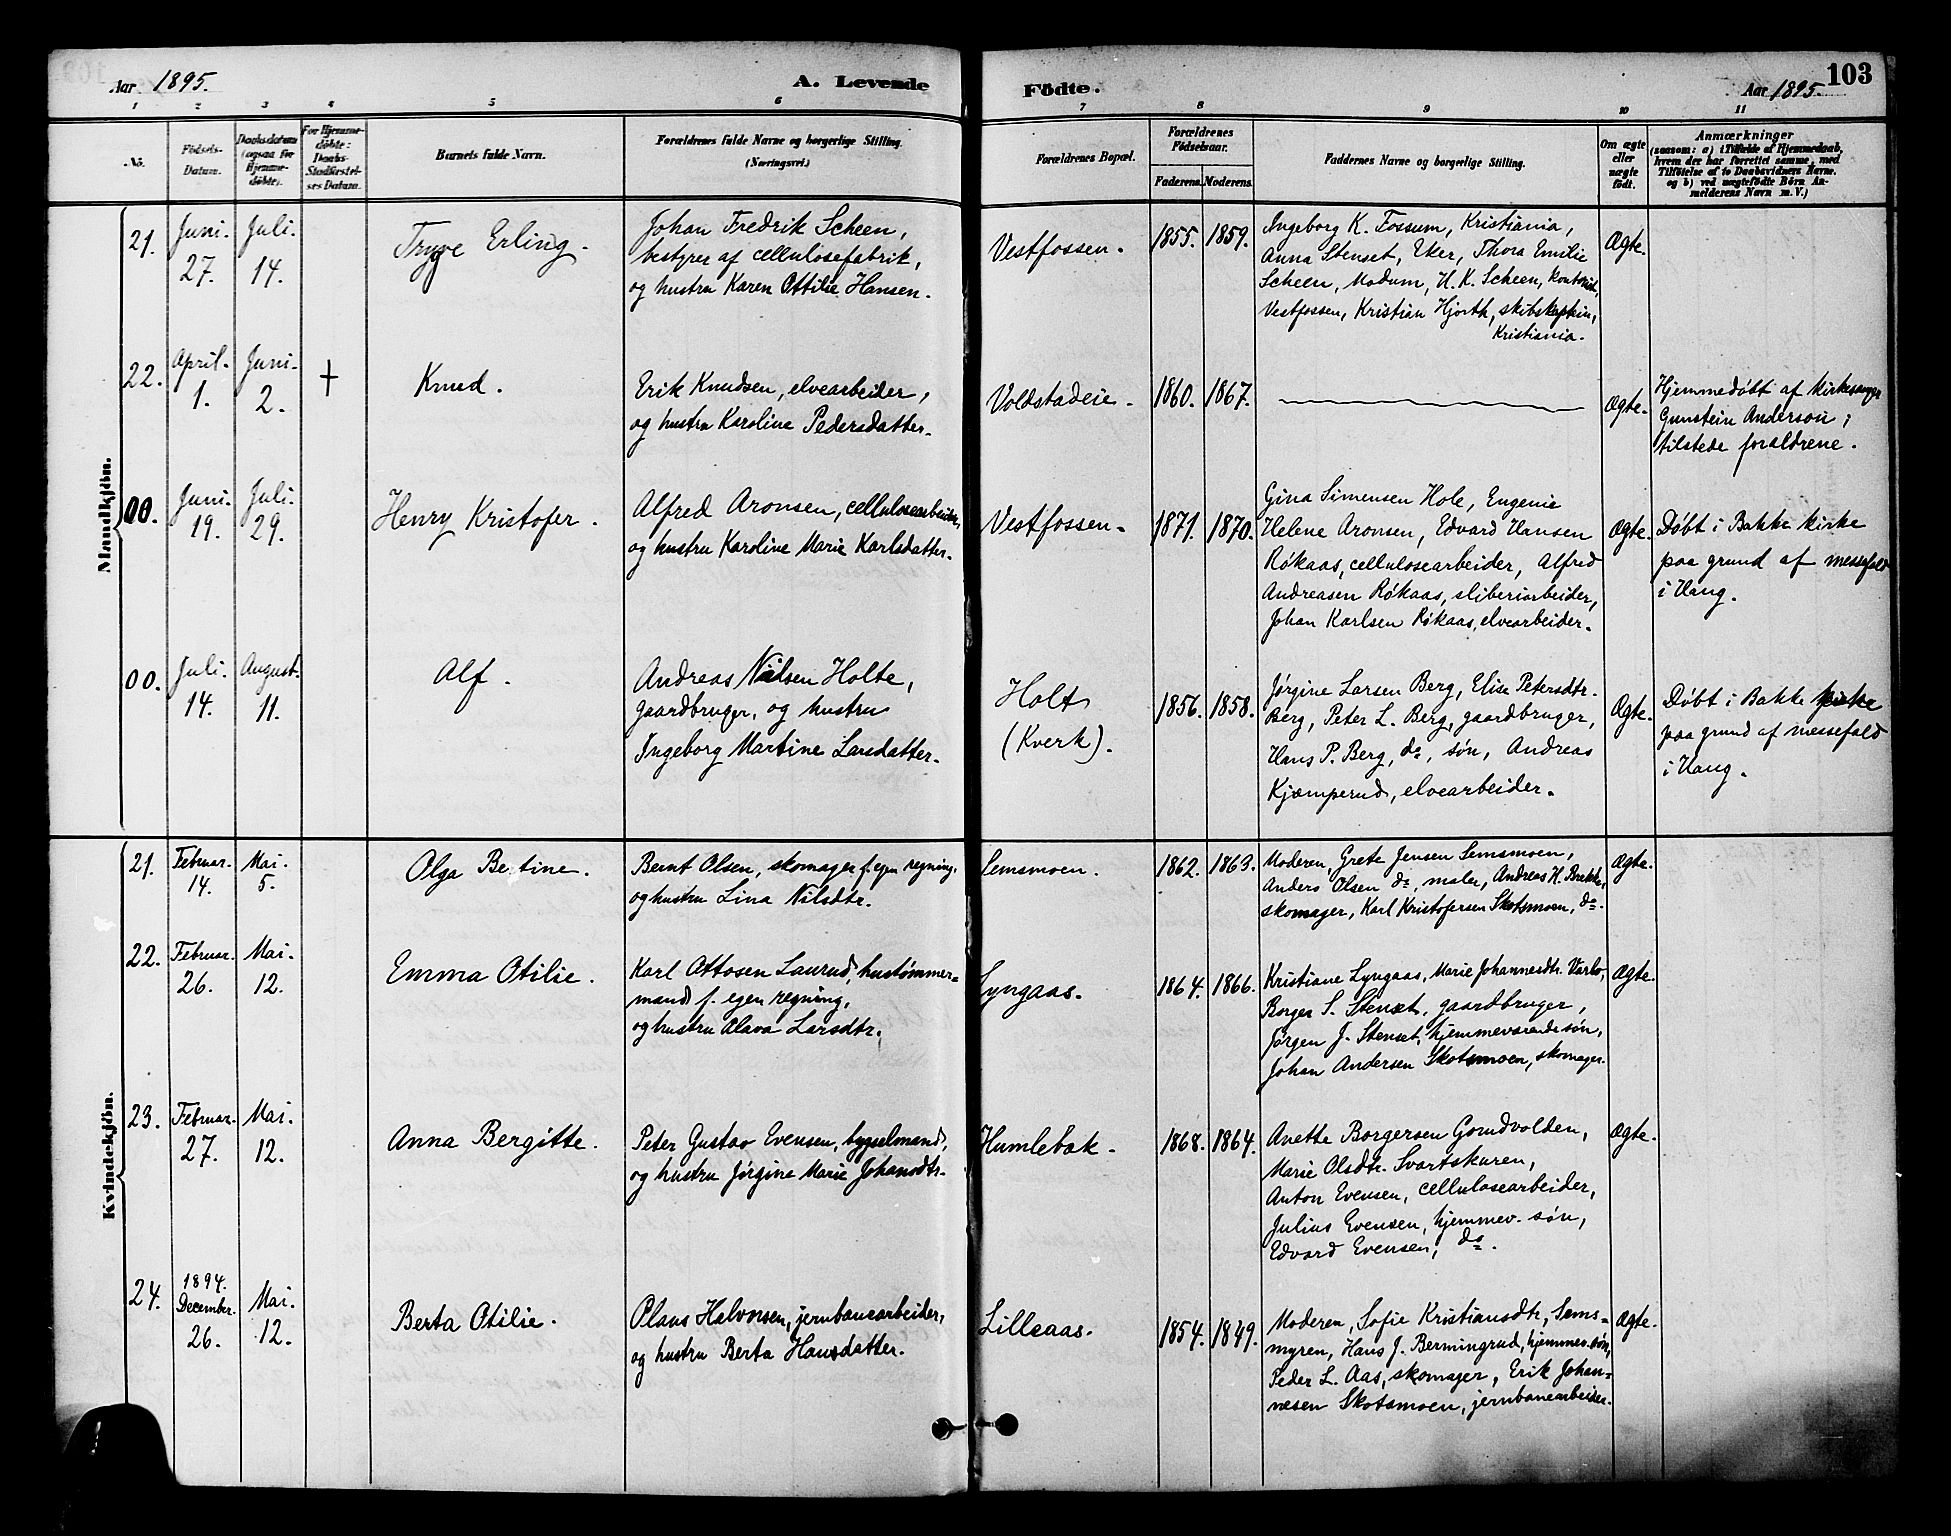 Aar 1895.
A. Levende
Födte.
Aar 1895.
103
1 2 3 4 5 6 7 8 9 10 11
No.
Födsels-
Datum.
Daabsdatum
(ogsaa for
Hjemme-
döbte).
For Hjemme-
döbte:
Daabs-
Stadfæstel-
ses Datum.
Barnets fulde Navn.
Forældrenes fulde Navne og borgerlige Stilling.
(Næringsvei.)
Forældrenes Bopæl.
Forældrenes
Födselsaar.
Faderens. Moderens.
Faddernes Navne og borgerlige Stilling.
Om ægte
eller
uægte
födt.
Anmærkninger
(saasom: a) i Tilfælde af Hjemmedaab,
hvem der har forrettet samme, med
Tilföielse af to Daabsvidners Navne.
og b) ved uægtefödte Börn An-
melderens Navn m. V.)
Mandkjön.
21.
Juni.
27.
Juli.
14.
Trygve Erling.
Johan Fredrik Scheen,
bestyrer af cellulosefabrik,
og hustru Karen Ottilie Hansen.
Vestfossen.
1855. 1859.
Ingeborg K. Fossum, Kristiania,
Anna Stenset, Eker, Thora Emilie
Scheen, Modum, H. K. Scheen, kontorist,
Vestfossen, Kristian Hjorth, skibskaptein,
Kristiania.
Ægte.
22.
April.
1.
Juni.
2.
+
Knud.
Erik Knudsen, elvearbeider,
og hustru Karoline Pedersdatter.
Voldstadeie.
1860. 1867.
Ægte.
Hjemmedøbt af kirkesanger
Gunstein Anderson;
tilstede forældrene.
00.
Juni.
19.
Juli.
29.
Henry Kristofer.
Alfred Aronsen, cellulosearbeider,
og hustru Karoline Marie Karlsdatter.
Vestfossen.
1871. 1870.
Gina Simensen Hole, Eugenie
Helene Aronsen, Edvard Hansen
Røkaas, cellulosearbeider, Alfred
Andreasen Røkaas, sliberiarbeider,
Johan Karlsen Røkaas, elvearbeider.
Ægte.
Døbt i Bakke kirke
paa grund af messefald
i Haug.
00.
Juli.
14.
August.
11.
Alf.
Andreas Nilsen Holte,
gaardbruger, og hustru
Ingeborg Martine Larsdatter.
Holt
(Kverk).
1856. 1858.
Jørgine Larsen Berg, Elise Petersdtr.
Berg, Peter L. Berg, gaardbruger,
Hans P. Berg, do, søn, Andreas
Kjæmperud, elvearbeider.
Ægte.
Døbt i Bakke kirke
paa grund af messefald
i Haug.
Kvindekjön.
21.
Februar.
14.
Mai.
5.
Olga Bertine.
Bernt Olsen, skomager f. egen regning,
og hustru Lina Nilsdtr.
Semsmoen.
1862. 1863.
Moderen, Grete Jensen Semsmoen,
Anders Olsen do, maler, Andreas H. Bakke,
skomager, Karl Kristofersen Skotsmoen, do.
Ægte.
22.
Februar.
26.
Mai.
12.
Emma Otilie.
Karl Ottosen Laurud, hustømmer-
mand f. egen regning,
og hustru Olava Larsdtr.
Lyngaas.
1864. 1866.
Kristiane Lyngaas, Marie Johannesdtr. Varlo,
Borger S. Stenset, gaardbruger,
Jørgen J. Stenset, hjemmeværende søn,
Johan Andersen Skotsmoen, skomager.
Ægte.
23.
Februar.
27.
Mai.
12.
Anna Bergitte.
Peter Gustav Evensen, bygselmand,
og hustru Jørgine Marie Johansdtr.
Humlebæk.
1868. 1864.
Anette Borgersen Gundvolden,
Marie Olsdtr. Svartskuren,
Anton Evensen, cellulosearbeider,
Julius Evensen, hjemmev. søn,
Edvard Evensen, do.
Ægte.
24.
1894.
December.
26.
Mai.
12.
Berta Otilie.
Olaus Halvorsen, jernbanearbeider,
og hustru Berta Hansdatter.
Lilleaas.
1854. 1849.
Moderen, Sofie Kristiansdtr, Sems-
myren, Hans J. Bermingrud, hjemmev. søn,
Peder L. Aas, skomager, Erik Johan-
nesen Skotsmoen, jernbanearbeider.
Ægte.